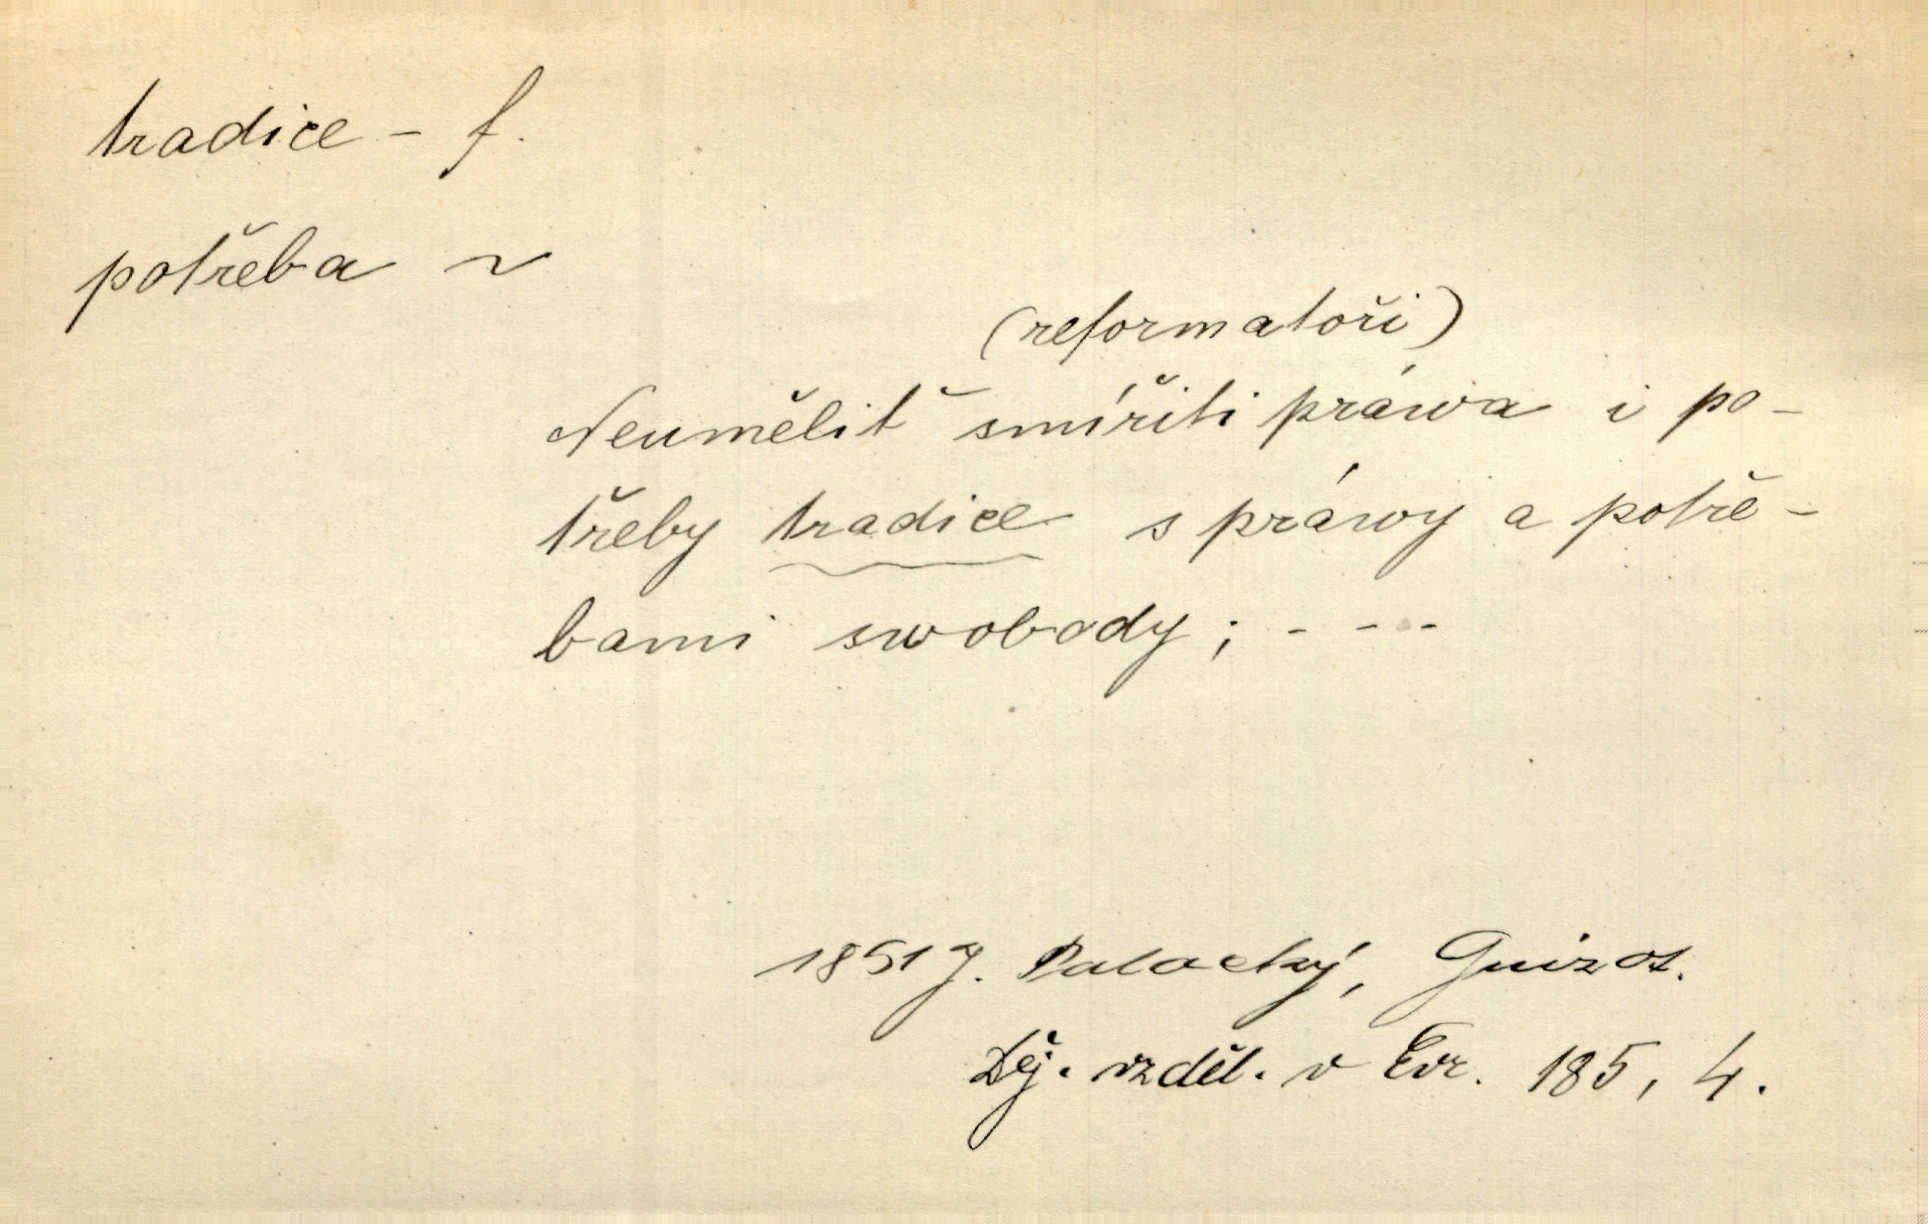 tradice - f.
potřeba ~
(reformatoři)
Neumělit' smířiti práwa i po-
třeby tradice s práwy a potře-
bami swobody ; - - -
1851 J. Palacký, Guizot.
Děj. vzděl. v Evr. 185, 4.